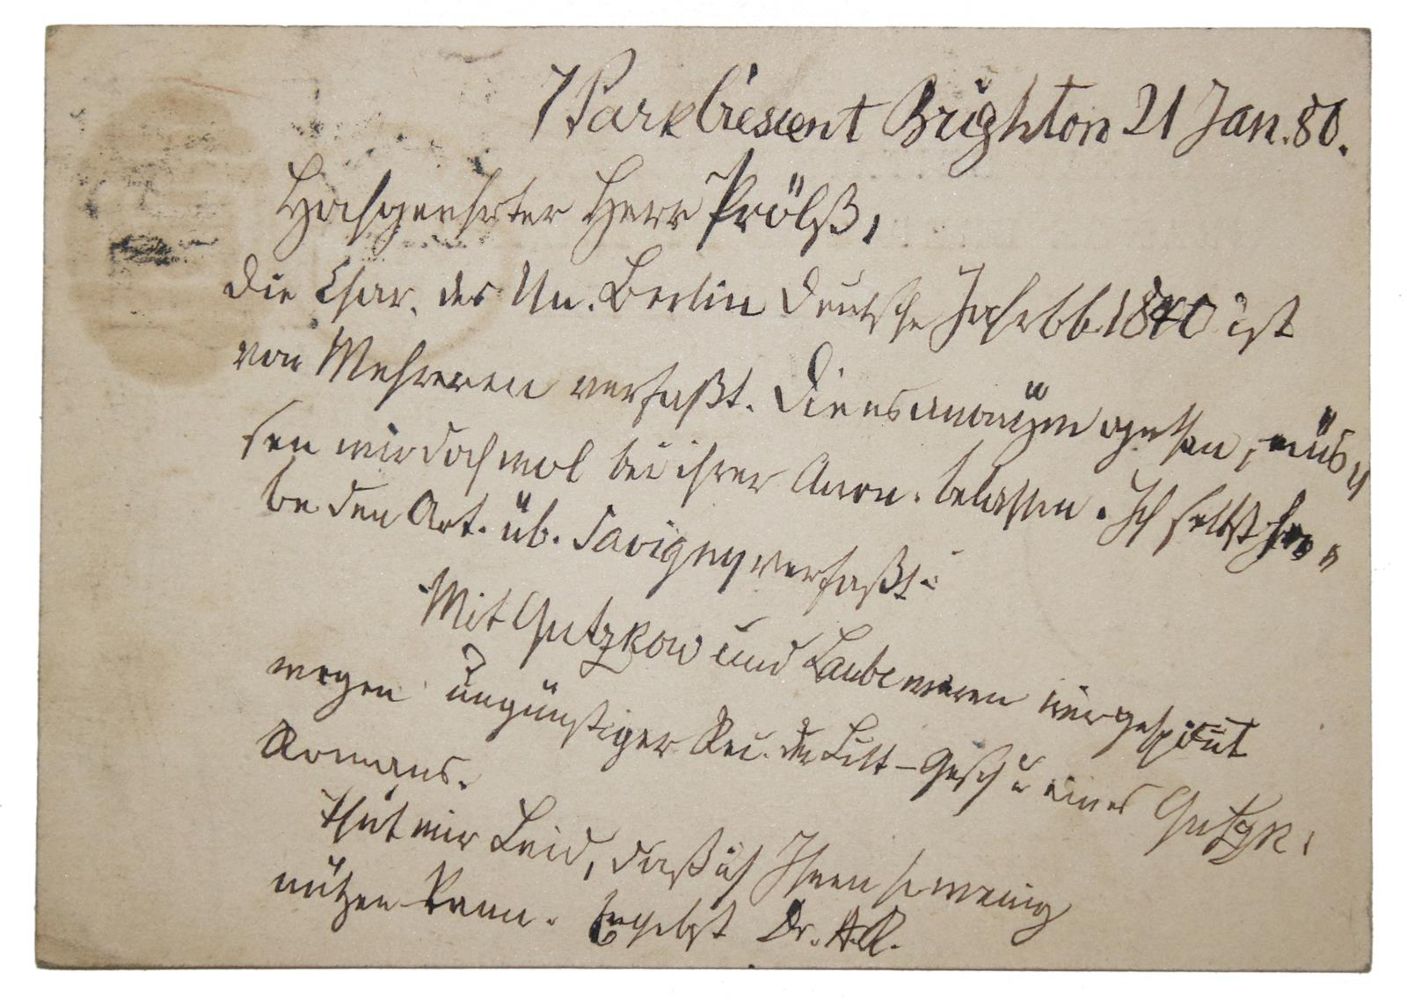 7 Park Crescent Brighton 21 Jan. 80.
Hochgeehrter Herr Prölß,
Die Char. der Un. Berlin Deutsche Jahrbb. 1840 ist
von Mehreren verfaßt. Die es anonym gethan, müs„
sen wir doch wol bei ihrer Anon. belassen. Ich selbst ha„
be den Art. üb. Savigny verfaßt.
Mit Gutzkow und Laube waren wir gespannt
wegen ungünstiger Rec. der Litt-Gesch u eines Gutzk.
Romans.
Thut mir Leid, daß ich Ihnen so wenig
nützen kann. Ergebst Dr. A.R.